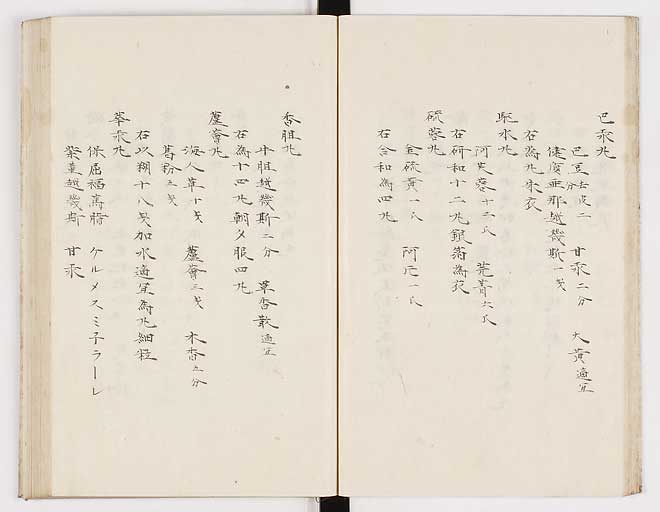 巴汞丸
巴豆去皮二分 甘汞二分 大黄適宜
健質亜那越幾斯一戔
右為丸朱衣
駆水丸
阿芙蓉十二氏 芫菁六氏
右研和十二丸銀箔為衣
硫黄丸
金硫黄一氏 阿片一氏
右合和為四丸
香胆丸
牛胆越幾斯二分 茴香散適宜
右為十四丸朝夕服四丸
蘆薈丸
海人草十戔 蘆薈三戔 木香五分
葛粉五戔
右以糊十八戔加水適宜為丸細粒
莘汞丸
依屈福烏脂 ケルメスミ子ラーレ
紫菫越幾斯 甘汞